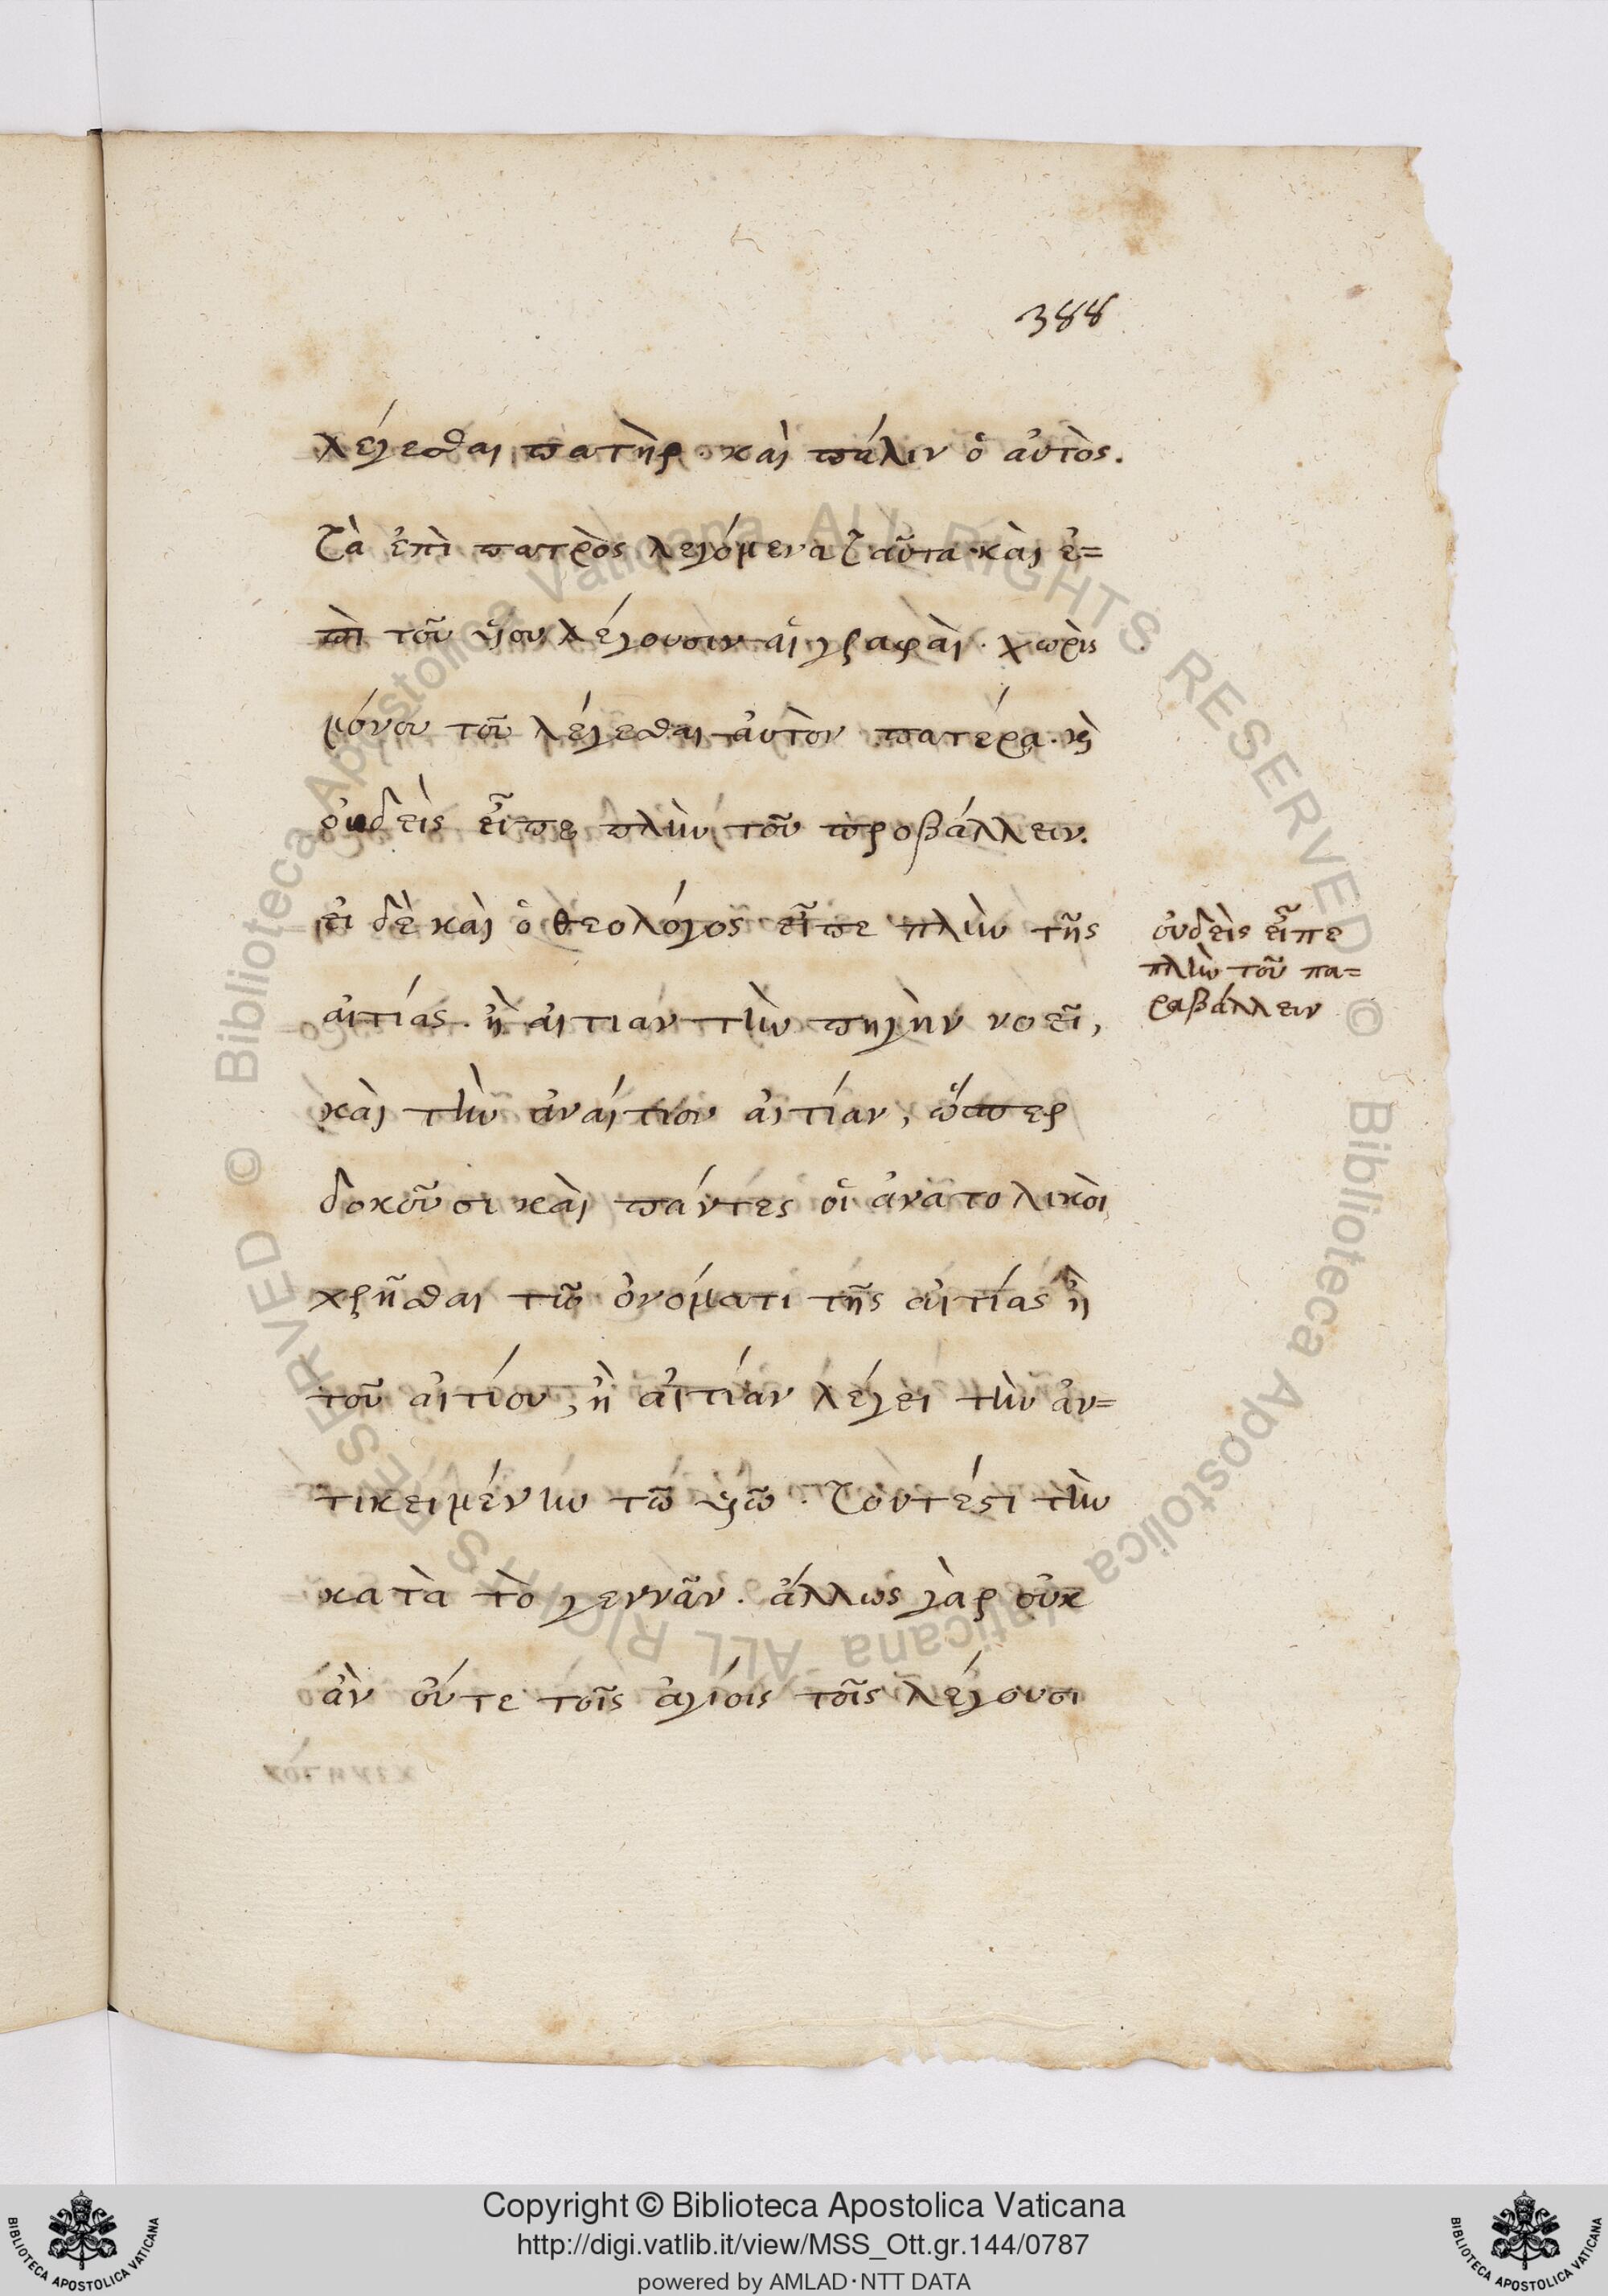 388
λέγεσθαι πατὴρ. καὶ πάλιν ὁ αὐτὸς.
τὰ ἐπὶ πατρὸς λεγόμενα ταῦτα καὶ ἐ=
πὶ τοῦ υἱοῦ λέγουσιν αἱ γραφαὶ. χωρὶς
μόνου τοῦ λέγεσθαι αὐτὸν πατέρα. καὶ
οὐδεὶς εἶπε πλὴν τοῦ προβάλλειν.
εἰ δὲ καὶ ὁ θεολόγος εἶπε πλὴν τῆς
αἰτίας. ἢ αἰτίαν τὴν πηγὴν νοεῖ,
καὶ τὴν ἀναίτιον αἰτίαν, ὥσπερ
δοκοῦσι καὶ πάντες οἱ ἀνατολικοὶ
χρῆσθαι τῶ ὀνόματι τῆς αἰτίας ἢ
τοῦ αἰτίου, ἢ αἰτίαν λέγει τὴν ἀν=
τικειμένην τῶ υἱῶ. τουτέστι τὴν
κατὰ τὸ γεννᾶν. ἄλλως γὰρ οὐκ
ἂν οὔτε τοῖς ἁγίοις τοῖς λέγουσι
οὐδεὶς εἶπε
πλὴν τοῦ πα=
ραβάλλειν
Copyright © Biblioteca Apostolica Vaticana
http://digi.vatlib.it/view/MSS_Ott.gr.144/0787
powered by AMLAD·NTT DATA
BIBLIOTECA APOSTOLICA VATICANA
BIBLIOTECA APOSTOLICA VATICANA
© Biblioteca Apostolica Vaticana ALL RIGHTS RESERVED
© Biblioteca Apostolica Vaticana ALL RIGHTS RESERVED